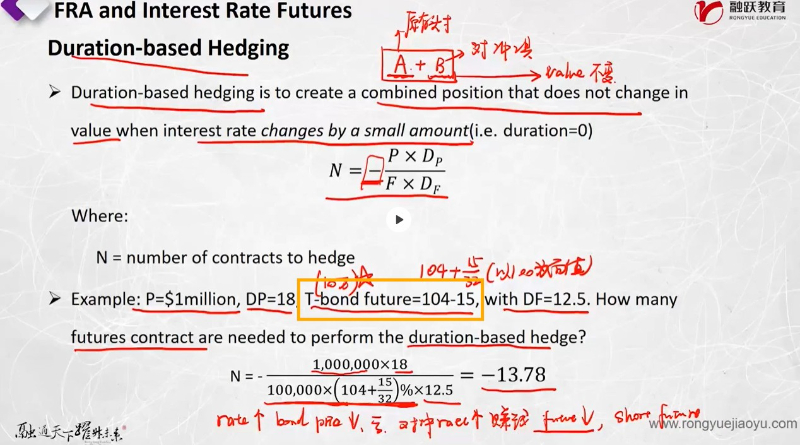 FRA and Interest Rate Futures
融跃教育
RONGYUE EDUCATION
Duration-based Hedging
原有头寸
A + B
对冲
value 不变
➤ Duration-based hedging is to create a combined position that does not change in
value when interest rate changes by a small amount(i.e. duration=0)
N = − P × D_P / F × D_F
Where:
N = number of contracts to hedge
104+15/32
➤ Example: P=$1million, DP=18, T-bond future=104-15, with DF=12.5. How many
futures contract are needed to perform the duration-based hedge?
N = - 1,000,000×18 / 100,000×(104+15/32)%×12.5 = −13.78
rate↑ bond price↓, 对冲 rate↑ 赚钱 future↓, short future
融通天下 跃我未来
www.rongyuejiaoyu.com